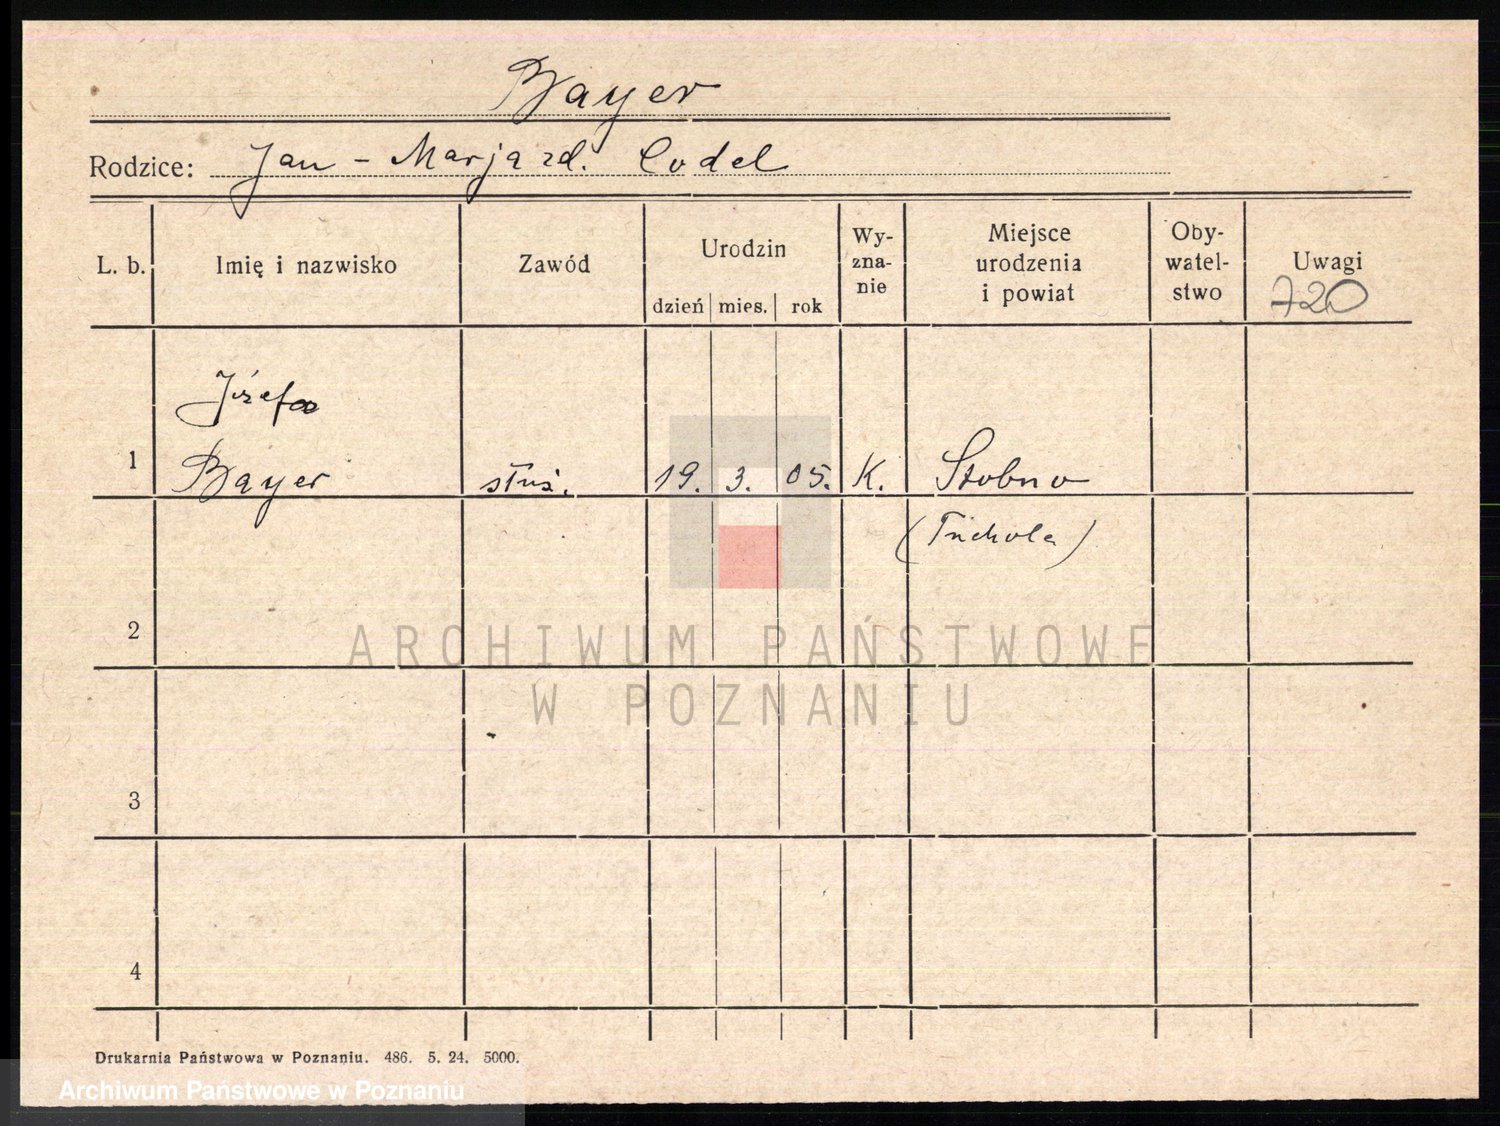 Bayer
Rodzice: Jan - Marja zd. Codel
L. b. Imię i nazwisko Zawód Urodzin dzień mies. rok Wy-zna-nie Miejsce urodzenia i powiat Oby-watel-stwo Uwagi
720
Józefa
1 Bayer służ. 19. 3. 05. K. Stobno
(Tuchola)
2
ARCHIWUM PAŃSTWOWE
W POZNANIU
3
4
Drukarnia Państwowa w Poznaniu. 486. 5. 24. 5000.
Archiwum Państwowe w Poznaniu